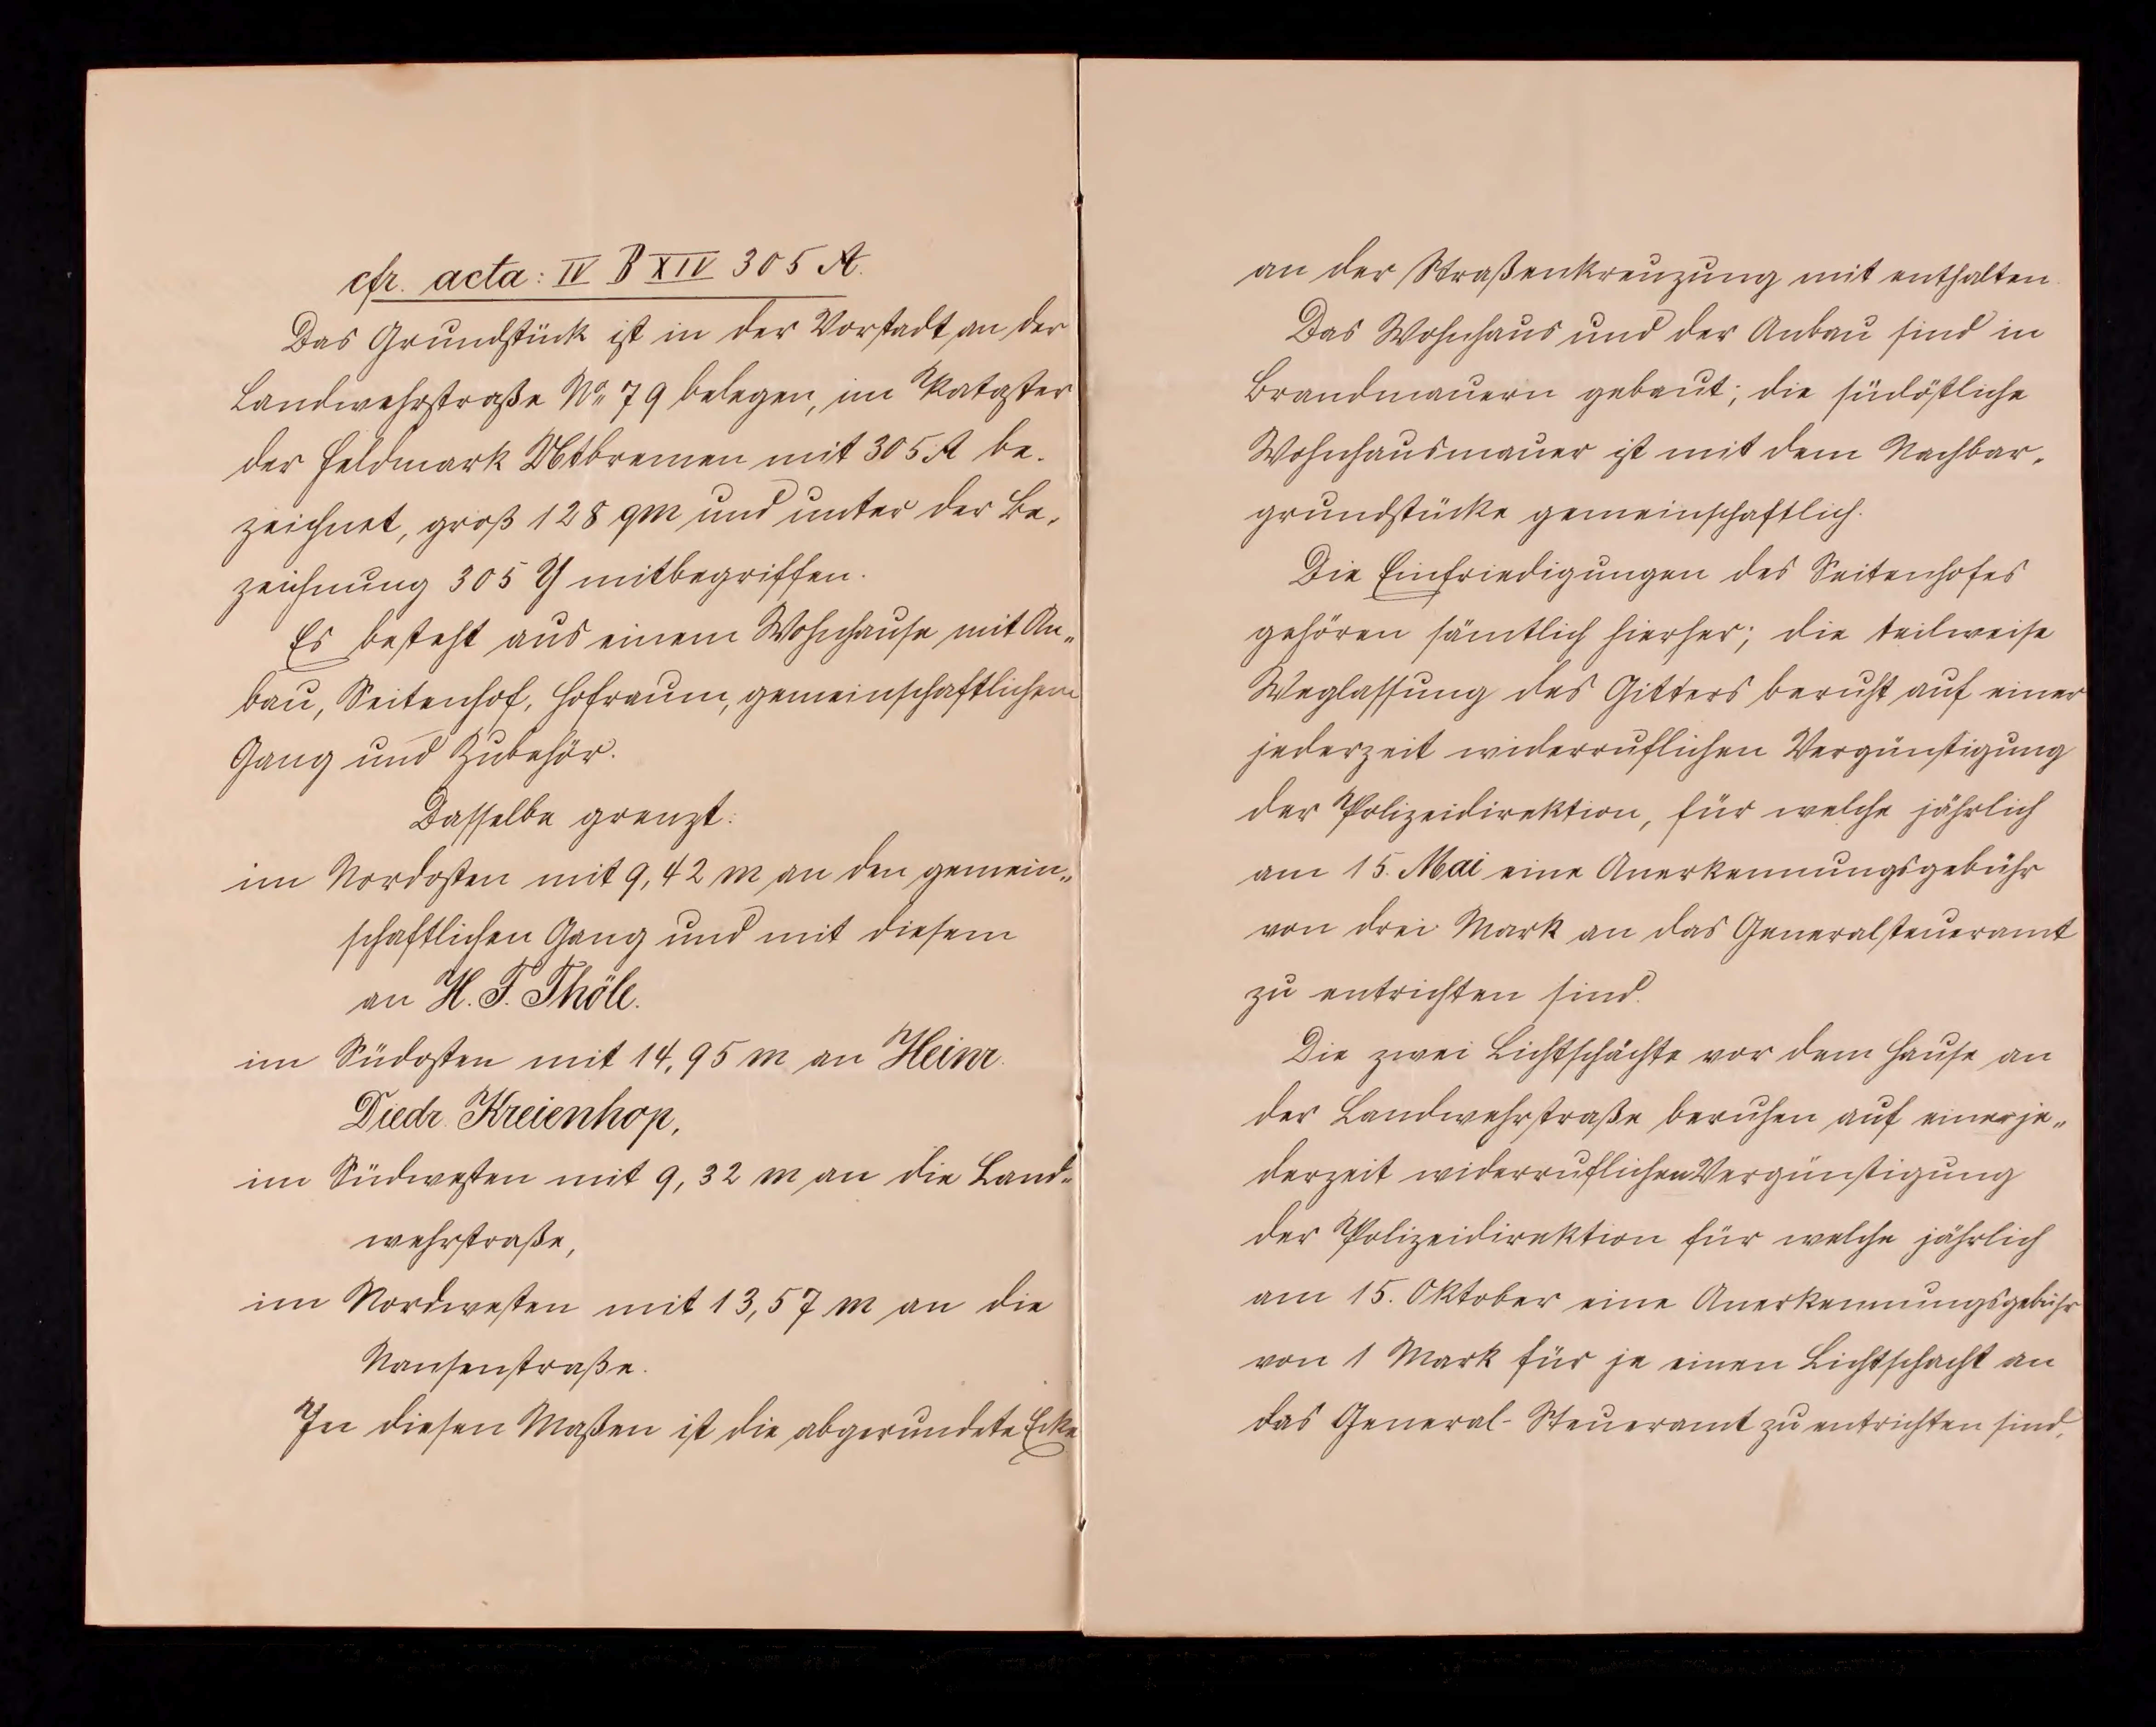 cfr. acta: IV B XIV 305 A.
Das Grundstück ist in der Vorstadt an der
Landwehrstraße No 79 belegen, im Kataster
der Feldmark Utbremen mit 305 A be-
zeichnet, groß 128 qm und unter der Be-
zeichnung 305 Y mitbegriffen.
Es besteht aus einem Wohnhause mit An-
bau, Seitenhof, Hofraum, gemeinschaftlichem
Gang und Zubehör.
Dasselbe grenzt:
im Nordosten mit 9,42 m an den gemein-
schaftlichen Gang und mit diesem
an H. F. Thöle.
im Südosten mit 14,95 m an Heinr.
Diedr. Kreienhop,
im Südwesten mit 9,32 m an die Land-
wehrstraße,
im Nordwesten mit 13,57 m an die
Nansenstraße.
In diesen Maßen ist die abgerundete Ecke
an der Straßenkreuzung mit enthalten.
Das Wohnhaus und der Anbau sind in
Brandmauern gebaut; die südöstliche
Wohnhausmauer ist mit dem Nachbar-
grundstücke gemeinschaftlich.
Die Einfriedigungen des Seitenhofes
gehören sämtlich hierher; die teilweise
Weglassung des Gitters beruht auf einer
jederzeit widerruflichen Vergünstigung
der Polizeidirektion, für welche jährlich
am 15. Mai eine Anerkennungsgebühr
von drei Mark an das Generalsteueramt
zu entrichten sind.
Die zwei Lichtschächte vor dem Hause an
der Landwehrstraße beruhen auf einer je-
derzeit widerruflichen Vergünstigung
der Polizeidirektion für welche jährlich
am 15. Oktober eine Anerkennungsgebühr
von 1 Mark für je einen Lichtschacht an
das General-Steueramt zu entrichten sind.